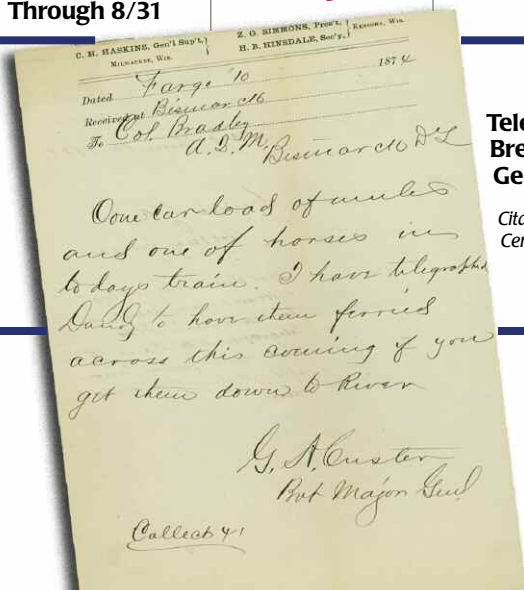 Through 8/31
C. H. HASKINS, Gen'l Sup't,
MILWAUKEE, WIS.
Z. G. SIMMONS, Pres't,
H. B. HINSDALE, Sec'y,
KENOSHA, WIS.
Dated Fargo 10 1874
Received at Bismarck
To Col. Bradley
A.Q.M. Bismarck D T
One car load of mules
and one of horses in
todays train. I have telegraphed
Dandy to have them ferried
across this evening if you
get them down to River
G. A. Custer
Bvt Major Genl
Collect 41
Tele
Bre
Ge
Cita
Cer